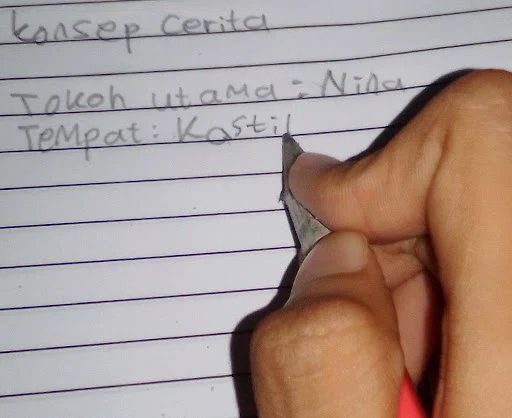 Konsep cerita
Tokoh utama : Nina
Tempat : Kastil